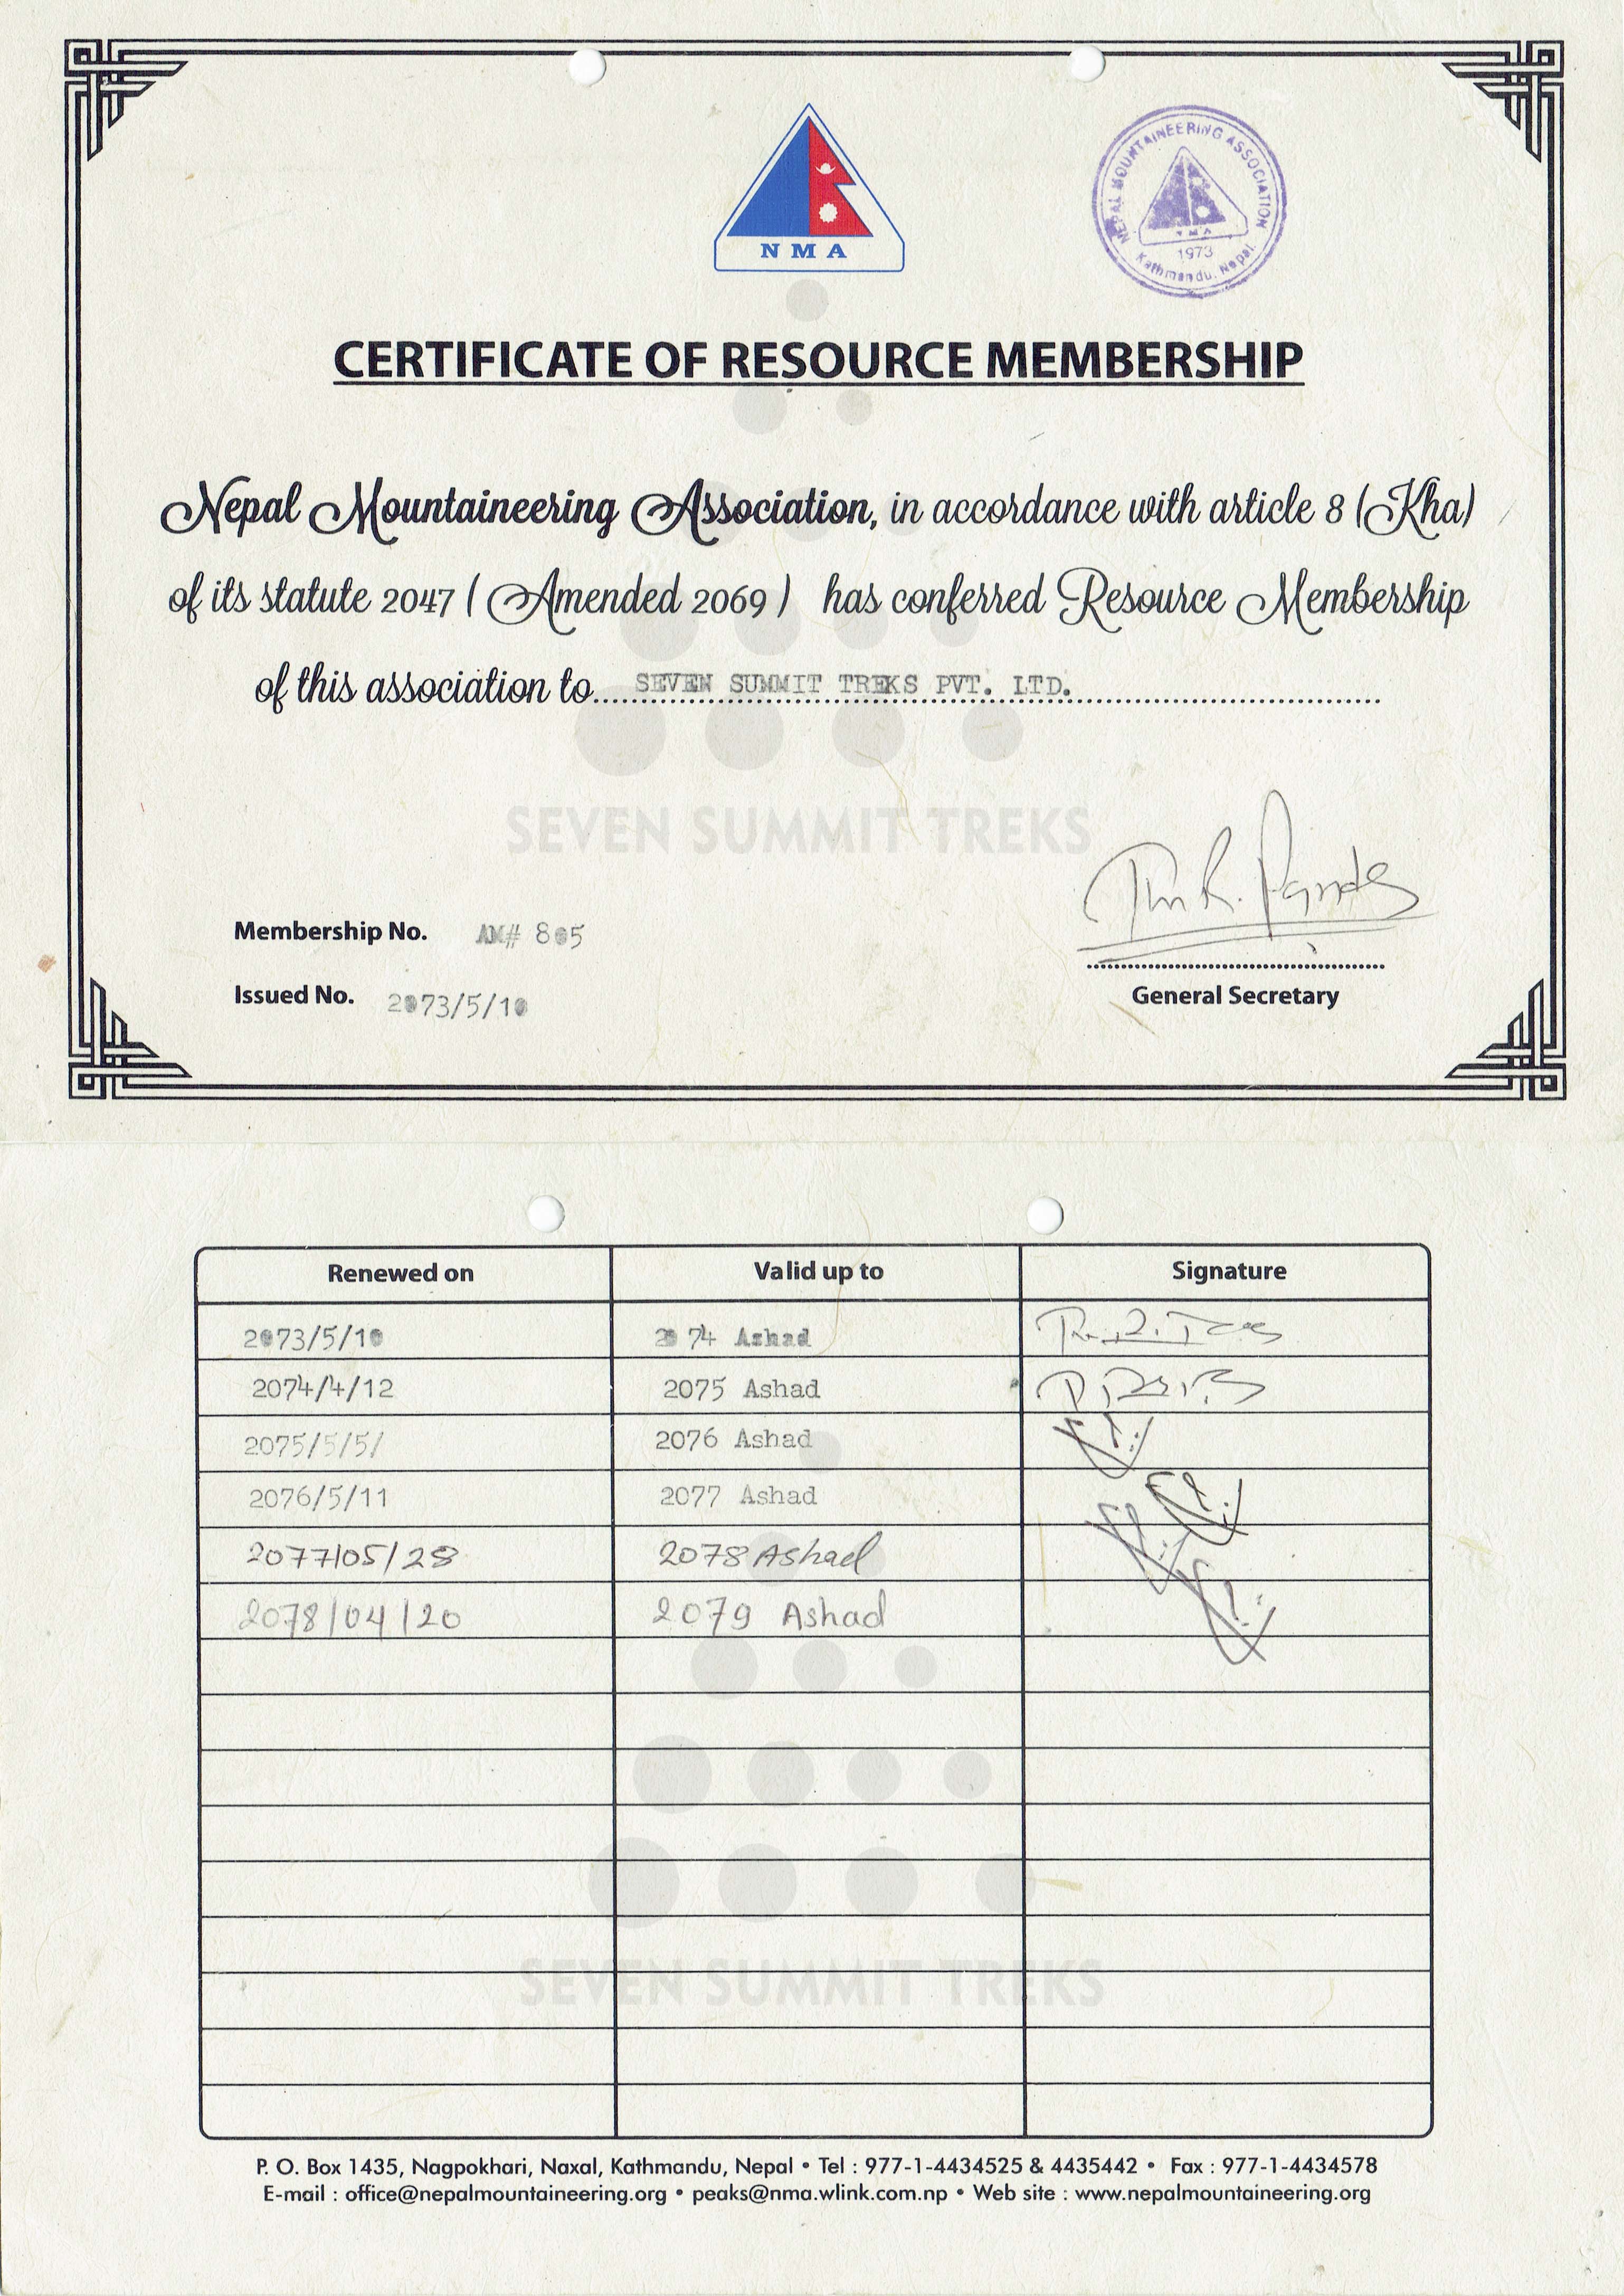 NMA
NEPAL MOUNTAINEERING ASSOCIATION
NMA
1973
Kathmandu, Nepal.
CERTIFICATE OF RESOURCE MEMBERSHIP
Nepal Mountaineering Association, in accordance with article 8 (Kha)
of its statute 2047 ( Amended 2069 ) has conferred Resource Membership
of this association to SEVEN SUMMIT TREKS PVT. LTD.
SEVEN SUMMIT TREKS
Membership No. AM# 805
Issued No. 2073/5/10
General Secretary
Renewed on Valid up to Signature
2073/5/10 2074 Ashad
2074/4/12 2075 Ashad
2075/5/5/ 2076 Ashad
2076/5/11 2077 Ashad
2077/05/28 2078 Ashad
2078/04/20 2079 Ashad
SEVEN SUMMIT TREKS
P. O. Box 1435, Nagpokhari, Naxal, Kathmandu, Nepal • Tel : 977-1-4434525 & 4435442 • Fax : 977-1-4434578
E-mail : office@nepalmountaineering.org • peaks@nma.wlink.com.np • Web site : www.nepalmountaineering.org